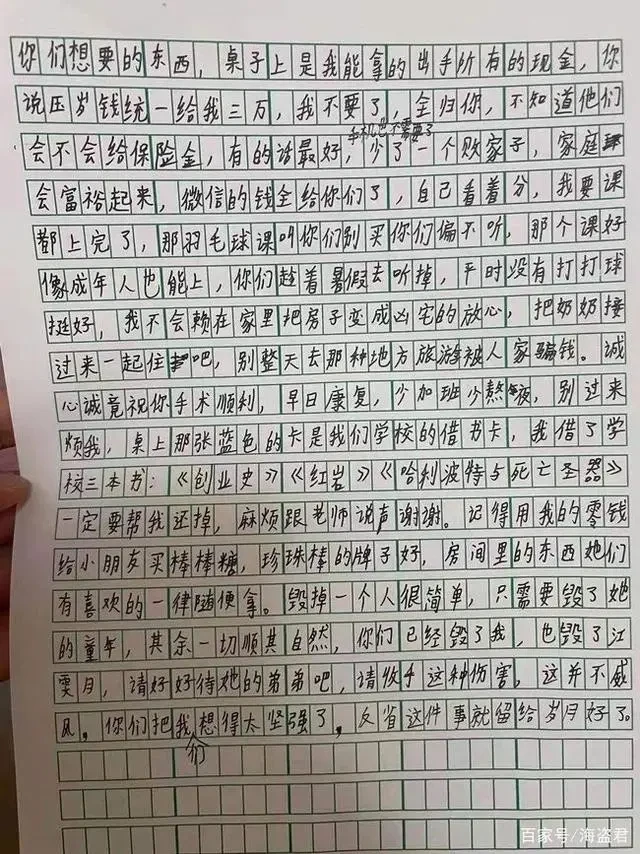 你们想要的东西，桌子上是我能拿的出手所有的现金，你
说压岁钱统一给我三万，我不要了，全归你，不知道他们
手机也不需要了
会不会给保险金，有的话最好，少了一个败家子，家庭
会富裕起来，微信的钱全给你们了，自己看着分，我要课
都上完了，那羽毛球课叫你们别买你们偏不听，那个课好
像成年人也能上，你们趁着暑假去听掉，平时没有打打球
挺好，我不会赖在家里把房子变成凶宅的放心，把奶奶接
过来一起住吧，别整天去那种地方旅游被人家骗钱。诚
心诚意祝你手术顺利，早日康复，少加班少熬夜，别过来
烦我，桌上那张蓝色的卡是我们学校的借书卡，我借了学
校三本书：《创业史》《红岩》《哈利波特与死亡圣器》
一定要帮我还掉，麻烦跟老师说声谢谢。记得用我的零钱
给小朋友买棒棒糖，珍珠棒的牌子好，房间里的东西她们
有喜欢的一律随便拿。毁掉一个人很简单，只需要毁了她
的童年，其余一切顺其自然，你们已经毁了我，也毁了江
雯月，请好好待她的弟弟吧，请收手这种伤害。这并不威
风，你们把我们想得太坚强了，反省这件事就留给岁月好了。
百家号/海盗君